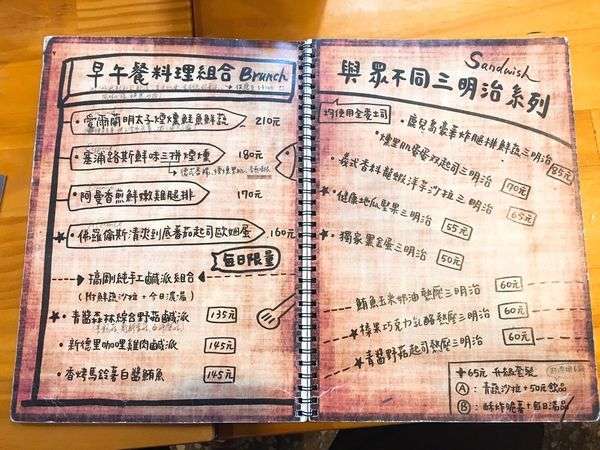 早午餐料理組合 Brunch
・愛爾蘭明太子燻鮭魚鮮蔬 210元
・塞浦路斯鮮味三拼燻 180元
・阿曼香煎鮮嫩雞腿排 170元
★・佛羅倫斯清爽到底番茄起司歐姆蛋 160元
每日限量
純手工鹹派組合
(附鮮蔬沙拉+今日濃湯)
★・青醬森林綜合野菇鹹派 135元
・新德里咖哩雞肉鹹派 145元
・杏烤馬鈴薯白醬鮪魚 145元
Sandwish
與眾不同三明治系列
均使用全麥土司
・鹿兒島豪華炸腿排鮮蔬三明治 85元
・燻里肌蛋蛋双起司三明治 70元
・義式香料龍蝦洋芋沙拉三明治 65元
★・健康地瓜堅果三明治 55元
★・獨家黑金蛋三明治 50元
鮪魚玉米奶油熱壓三明治 60元
★榛果巧克力乳酪熱壓三明治 60元
★青醬野菇起司熱壓三明治 60元
+65元 升級套餐
Ⓐ:青蔬沙拉+50元飲品
Ⓑ:酥炸脆薯+每日湯品